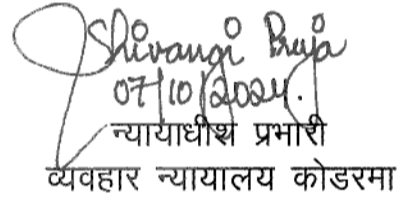 Shivangi Priya
07/10/2024.
न्यायाधीश प्रभारी
व्यवहार न्यायालय कोडरमा